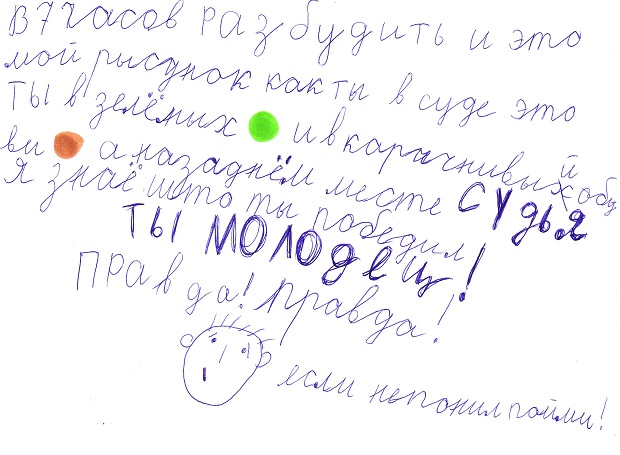 В 7 часов разбудить и это
мой рысунок как ты в суде это
ты в зелёных и в карачнивых
й
обу
ви а на заднём месте судья
я знаё што ты победил
ты молодец!
правда! правда!
если непонил пойми!